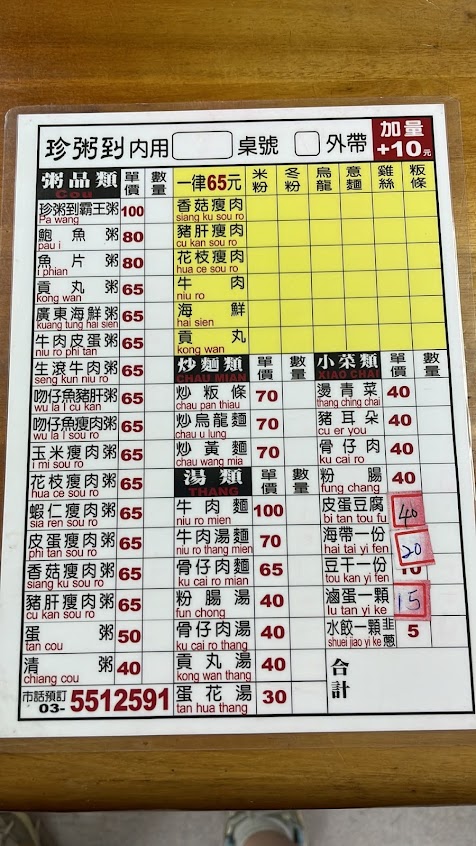 珍粥到 內用 桌號 外帶 加量 +10元
粥品類 單價 數量
Cou
珍粥到霸王粥 100
Pa wang
鮑魚粥 80
pau i
魚片粥 80
i phian
貢丸粥 65
kong wan
廣東海鮮粥 65
kuang tung hai sien
牛肉皮蛋粥 65
niu ro phi tan
生滾牛肉粥 65
seng kun niu ro
吻仔魚豬肝粥 65
wu la i cu kan
吻仔魚瘦肉粥 65
wu la i sou ro
玉米瘦肉粥 65
i mi sou ro
花枝瘦肉粥 65
hua ce sou ro
蝦仁瘦肉粥 65
sia ren sou ro
皮蛋瘦肉粥 65
phi tan sou ro
香菇瘦肉粥 65
siang ku sou ro
豬肝瘦肉粥 65
cu kan sou ro
蛋粥 50
tan cou
清粥 40
chiang cou
市話預訂 03-5512591
一律65元 米粉 冬粉 烏龍 意麵 雞絲 粄條
香菇瘦肉
siang ku sou ro
豬肝瘦肉
cu kan sou ro
花枝瘦肉
hua ce sou ro
牛肉
niu ro
海鮮
hai sien
貢丸
kong wan
炒麵類 單價 數量
CHAU MIAN
炒粄條 70
chau pan thiau
炒烏龍麵 70
chau u lung
炒黃麵 70
chau wang mia
湯類 單價 數量
THANG
牛肉麵 100
niu ro mien
牛肉湯麵 70
niu ro thang mien
骨仔肉麵 65
ku cai ro mian
粉腸湯 40
fun chong
骨仔肉湯 40
ku cai ro thang
貢丸湯 40
kong wan thang
蛋花湯 30
tan hua thang
小菜類 單價 數量
XIAO CHAI
燙青菜 40
thang ching chai
豬耳朵 40
cu er you
骨仔肉 40
ku cai ro
粉腸 40
fung chang
皮蛋豆腐 40
bi tan tou fu
海帶一份 20
hai tai yi fen
豆干一份 10
tou kan yi fen
滷蛋一顆 15
lu tan yi ke
水餃一顆 韭蔥 5
shuei jiao yi ke
合計